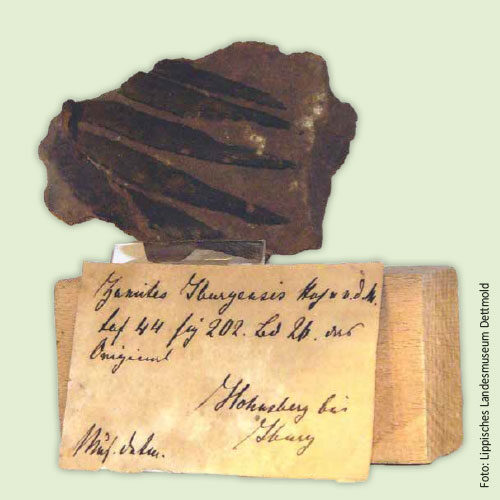 Zamites Iburgensis Hos. u. v. d. M.
taf 44 fig 202. Bd 26. das
Original
Hohnsberg bei
Iburg
Mus. detm.
Foto: Lippisches Landesmuseum Dettmold